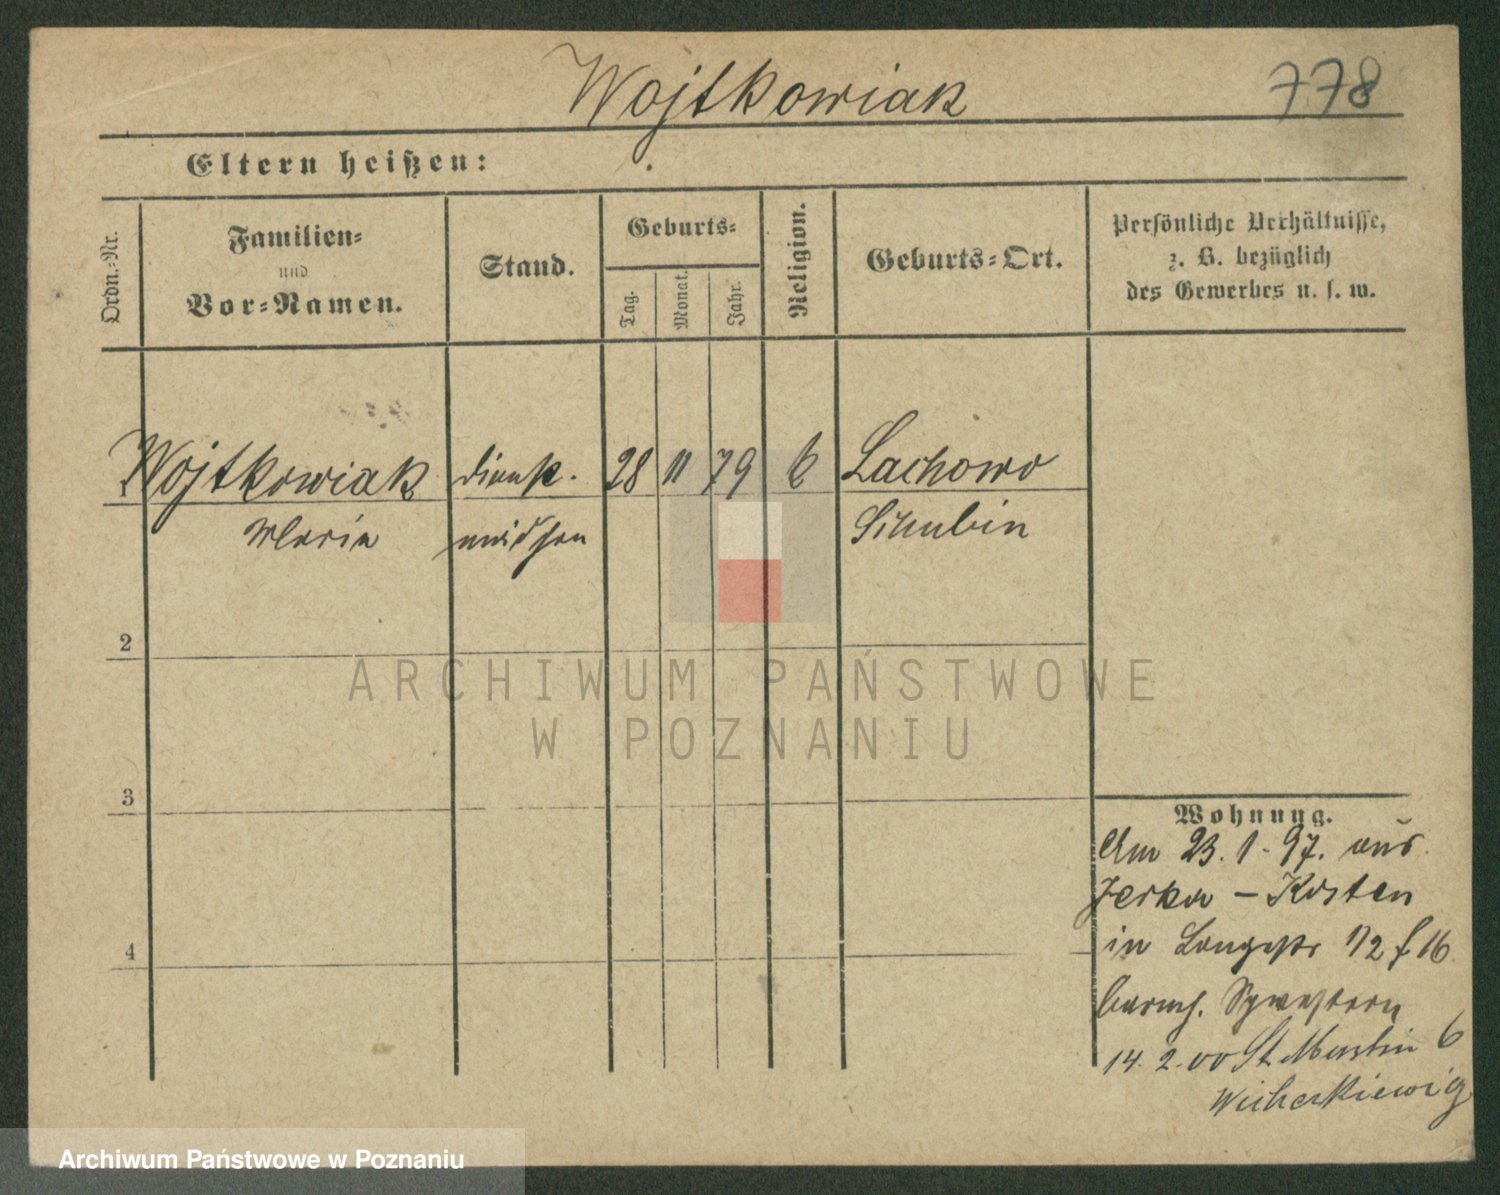 Wojtkowiak
778
Eltern heißen:
Ordn.-Nr.
Familien-
und
Vor-Namen.
Stand.
Geburts-
Tag.
Monat.
Jahr.
Religion.
Geburts-Ort.
Persönliche Verhältnisse,
z. B. bezüglich
des Gewerbes u. s. w.
1 Wojtkowiak dienst. 28 11 79 Lachowo
Maria mädchen Schubin
2
3
4
Wohnung.
Am 23. 1. 97. aus
Jerka - Kosten
in Langestr
barmh. Schwestern
14. 2. 00 St Martin 6
ARCHIWUM PAŃSTWOWE
W POZNANIU
Archiwum Państwowe w Poznaniu